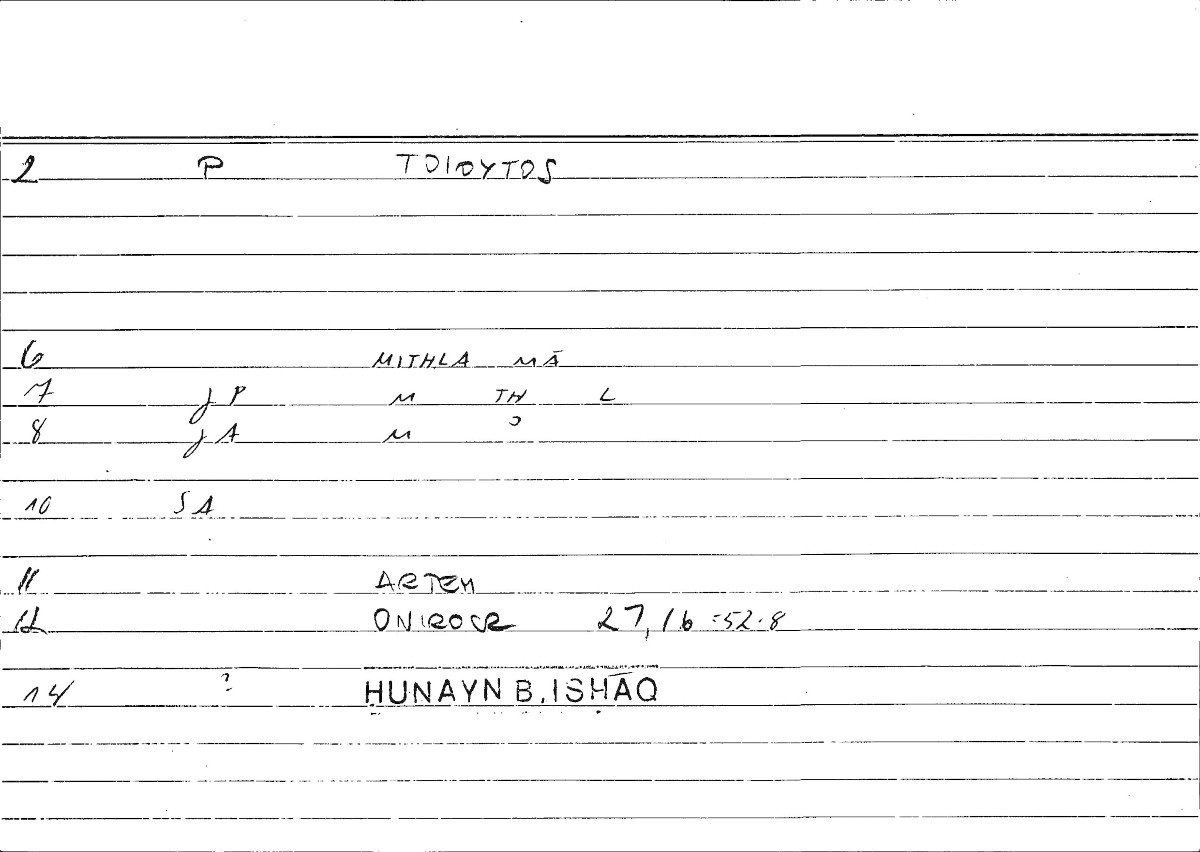 2 P TOIOYTOS
6 MITHLA MĀ
7 J P M TH L
8 J A M ɔ
10 S A
11 ARTEM
12 ONIROCR 27,16 = 52.8
14 ? HUNAYN B. ISHĀQ